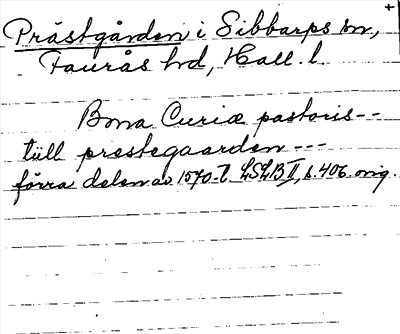 +
Prästgården i Sibbarps sn,
Faurås hd, Hall. l.
Bona Curiæ pastoris--
till prestegaarden ---
förra delen av 1570-t. LSLB II, s. 406. orig.